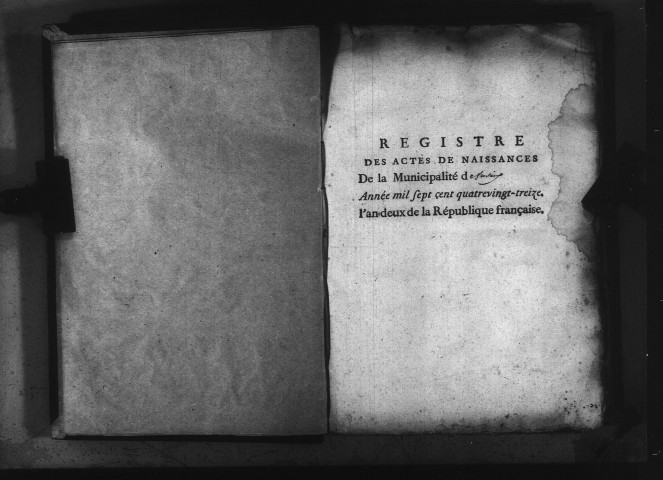 REGISTRE
DES ACTES DE NAISSANCES
De la Municipalité d
Année mil sept çent quatrevingt-treize,
l'an deux de la République française.